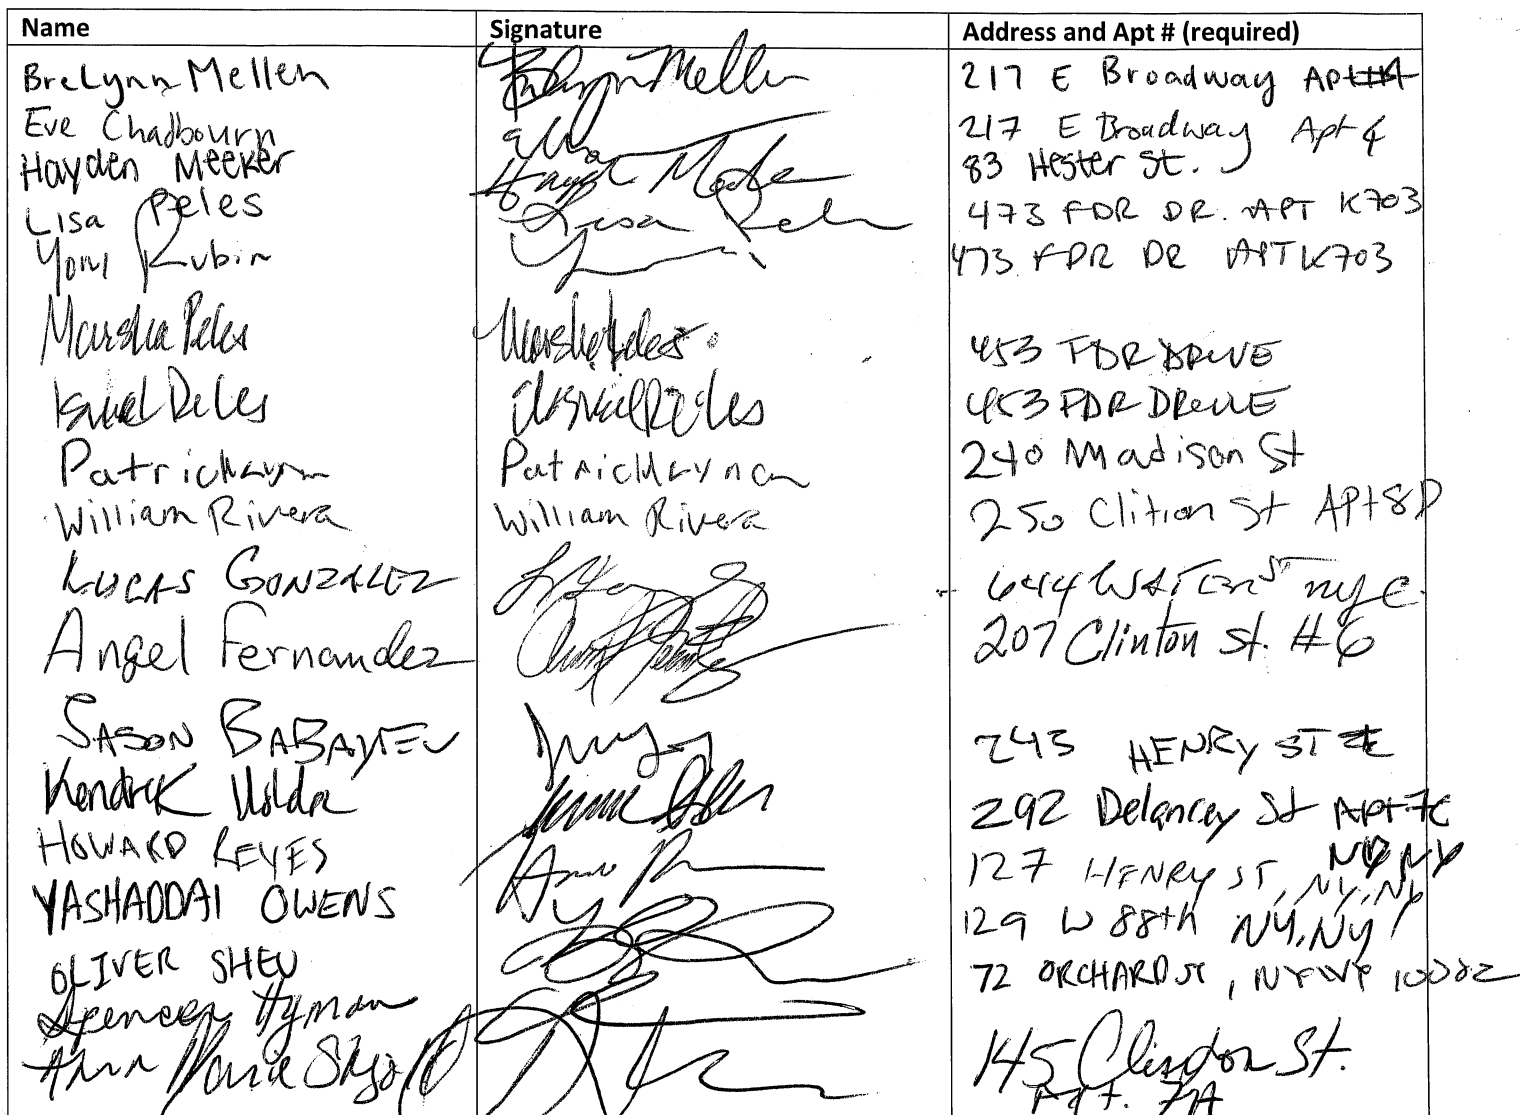 Name Signature Address and Apt # (required)
BreLynn Mellen BreLynn Mellen 217 E Broadway Apt #4
Eve Chadbourn 217 E Broadway Apt 4
Hayden Meeker Hayden Meeker 83 Hester St.
Lisa Peles Lisa Peles 473 FDR DR. APT K703
Yoni Rubin 473 FDR DR APT K703
Marsha Peles Marsha Peles 453 FDR DRIVE
Israel Peles Israel Peles 453 FDR DRIVE
Patrick 240 Madison St
William Rivera William Rivera 250 Clition St APt 8D
LUCAS GONZALEZ 644 WATER ST nyc
Angel Fernandez 207 Clinton St. #6
SASON BABAYEV 243 HENRY ST
Kendrick 292 Delancey St APt 7C
HOWARD REYES 127 HENRY ST, NY, NY
YASHADDAI OWENS 129 W 88th NY, NY
OLIVER SHEU 72 ORCHARD ST, NY NY
Spencer Hyman
Ann Marie 145 Clinton St.
Apt. 7A